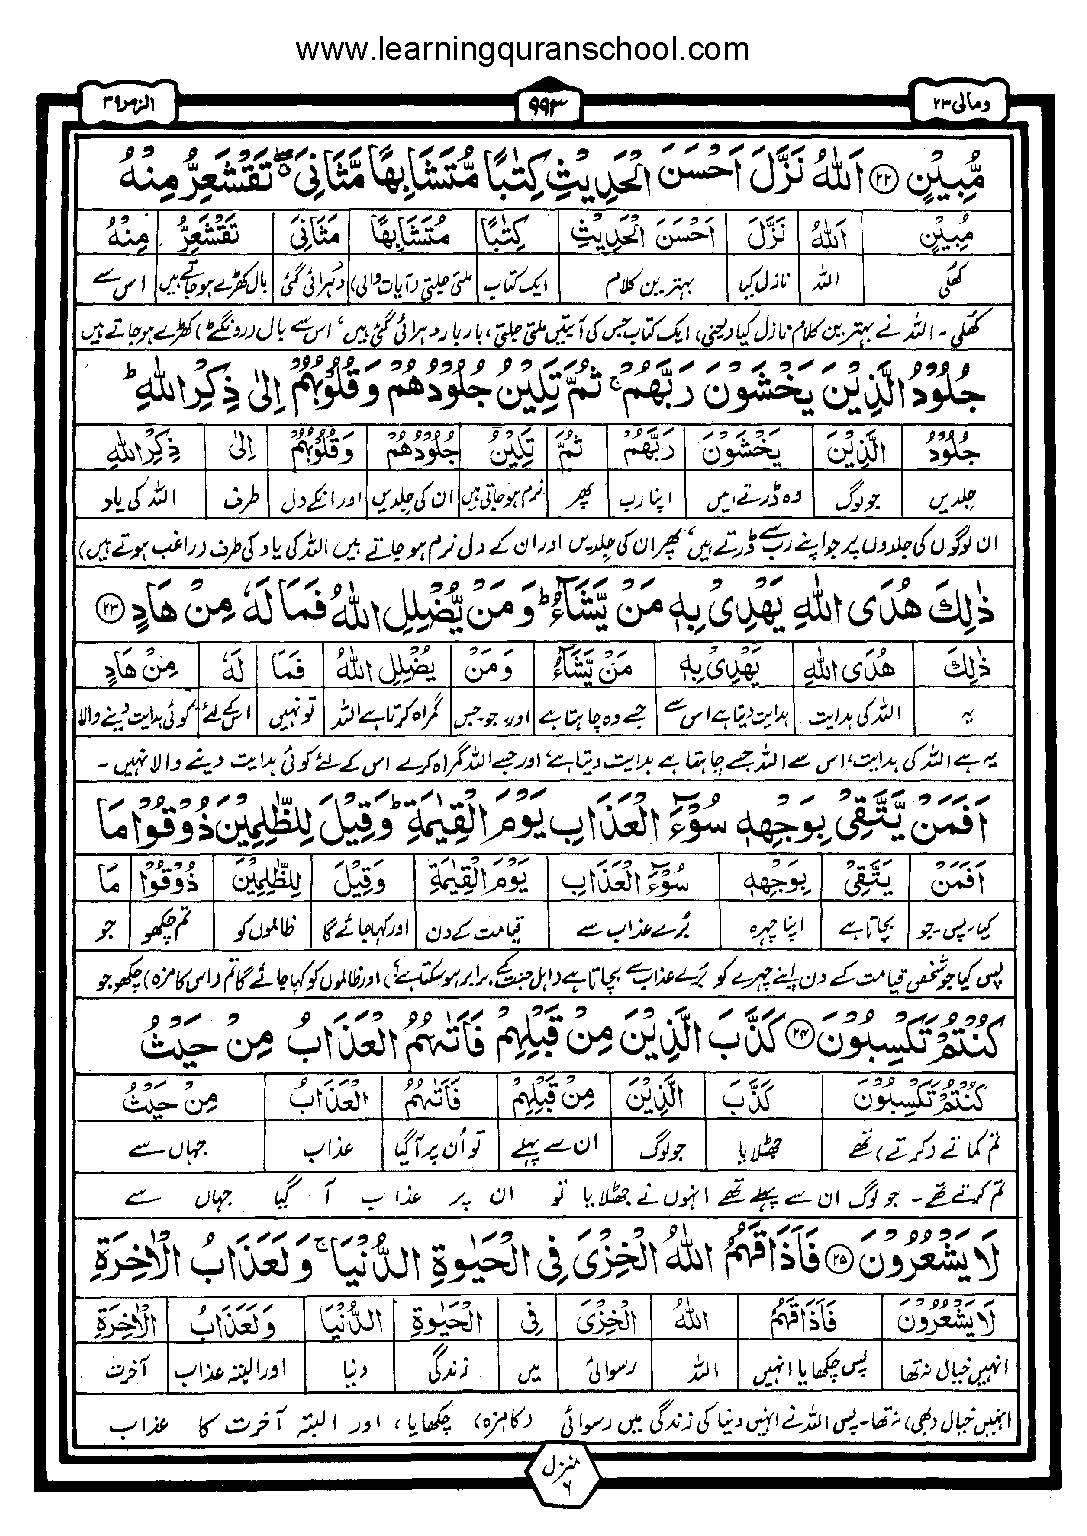 www.learningquranschool.com
ومالی ۲۳
۹۹۳
الزمر ۳۹
مُّبِيْنٍ ۲۲ اَللّٰهُ نَزَّلَ اَحْسَنَ الْحَدِيْثِ كِتٰبًا مُّتَشَابِهًا مَّثَانِيَ ۖ تَقْشَعِرُّ مِنْهُ
مُبِيْنٍ اَللّٰهُ نَزَّلَ اَحْسَنَ الْحَدِيْثِ كِتٰبًا مُتَشَابِهًا مَثَانِيَ تَقْشَعِرُّ مِنْهُ
کھلی اللہ نازل کیا بہترین کلام ایک کتاب ملتی جلتی (آیات والی) دہرائی گئی بال کھڑے ہوجاتے ہیں اس سے
کھلی۔ اللہ نے بہترین کلام نازل کیا (یعنی) ایک کتاب جس کی آیتیں ملتی جلتی، بار بار دہرائی گئی ہیں، اس سے بال (رونگٹے) کھڑے ہو جاتے ہیں
جُلُوْدُ الَّذِيْنَ يَخْشَوْنَ رَبَّهُمْ ۚ ثُمَّ تَلِيْنُ جُلُوْدُهُمْ وَقُلُوْبُهُمْ اِلٰى ذِكْرِ اللّٰهِ ؕ
جُلُوْدُ الَّذِيْنَ يَخْشَوْنَ رَبَّهُمْ ثُمَّ تَلِيْنُ جُلُوْدُهُمْ وَقُلُوْبُهُمْ اِلٰى ذِكْرِ اللّٰهِ
جلدیں جو لوگ وہ ڈرتے ہیں اپنا رب پھر نرم ہو جاتی ہیں ان کی جلدیں اور انکے دل طرف اللہ کی یاد
ان لوگوں کی جلدوں پر جو اپنے رب سے ڈرتے ہیں، پھر ان کی جلدیں اور ان کے دل نرم ہو جاتے ہیں اللہ کی یاد کی طرف (راغب ہوتے ہیں)
ذٰلِكَ هُدَى اللّٰهِ يَهْدِيْ بِهٖ مَنْ يَّشَآءُ ؕ وَمَنْ يُّضْلِلِ اللّٰهُ فَمَا لَهٗ مِنْ هَادٍ ۲۳
ذٰلِكَ هُدَى اللّٰهِ يَهْدِيْ بِهٖ مَنْ يَّشَآءُ وَمَنْ يُضْلِلِ اللّٰهُ فَمَا لَهٗ مِنْ هَادٍ
یہ اللہ کی ہدایت ہدایت دیتا ہے اس سے جسے وہ چاہتا ہے اور جو۔جس گمراہ کرتا ہے اللہ تو نہیں اس کے لئے کوئی ہدایت دینے والا
یہ ہے اللہ کی ہدایت، اس سے اللہ جسے چاہتا ہے ہدایت دیتا ہے، اور جسے اللہ گمراہ کرے اس کے لئے کوئی ہدایت دینے والا نہیں۔
اَفَمَنْ يَّتَّقِيْ بِوَجْهِهٖ سُوْٓءَ الْعَذَابِ يَوْمَ الْقِيٰمَةِ ؕ وَقِيْلَ لِلظّٰلِمِيْنَ ذُوْقُوْا مَا
اَفَمَنْ يَتَّقِيْ بِوَجْهِهٖ سُوْٓءَ الْعَذَابِ يَوْمَ الْقِيٰمَةِ وَقِيْلَ لِلظّٰلِمِيْنَ ذُوْقُوْا مَا
کیا۔پس۔جو بچاتا ہے اپنا چہرہ بُرے عذاب سے قیامت کے دن اور کہا جائے گا ظالموں کو تم چکھو جو
پس کیا جو شخص قیامت کے دن اپنے چہرے کو بُرے عذاب سے بچاتا ہے (اہل جنت کے برابر ہو سکتا ہے)، اور ظالموں کو کہا جائے گا تم (اس کا مزہ) چکھو جو
كُنْتُمْ تَكْسِبُوْنَ ۲۴ كَذَّبَ الَّذِيْنَ مِنْ قَبْلِهِمْ فَاَتٰىهُمُ الْعَذَابُ مِنْ حَيْثُ
كُنْتُمْ تَكْسِبُوْنَ كَذَّبَ الَّذِيْنَ مِنْ قَبْلِهِمْ فَاَتٰىهُمُ الْعَذَابُ مِنْ حَيْثُ
تم کماتے (کرتے) تھے جھٹلایا جو لوگ ان سے پہلے تو اُن پر آگیا عذاب جہاں سے
تم کرتے تھے۔ جو لوگ ان سے پہلے تھے انہوں نے جھٹلایا تو ان پر عذاب آ گیا جہاں سے
لَا يَشْعُرُوْنَ ۲۵ فَاَذَاقَهُمُ اللّٰهُ الْخِزْيَ فِي الْحَيٰوةِ الدُّنْيَا ۚ وَلَعَذَابُ الْاٰخِرَةِ
لَا يَشْعُرُوْنَ فَاَذَاقَهُمُ اللّٰهُ الْخِزْيَ فِي الْحَيٰوةِ الدُّنْيَا وَلَعَذَابُ الْاٰخِرَةِ
انہیں خیال نہ تھا پس چکھایا انہیں اللہ رسوائی میں زندگی دنیا اور البتہ عذاب آخرت
انہیں خیال (بھی) نہ تھا۔ پس اللہ نے انہیں دنیا کی زندگی میں رسوائی (کا مزہ) چکھایا، اور البتہ آخرت کا عذاب
منزل ۶